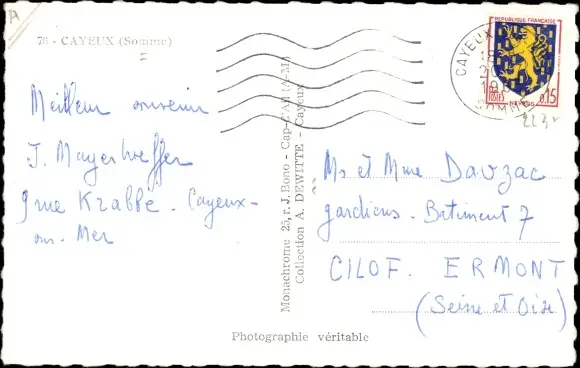 A
76 - CAYEUX (Somme)
Meilleur souvenir
J. Mayerhoeffer
9 rue Krabbe. Cayeux-
sur-Mer
Monachrome 25, r. J. Bono - Cap-d'Ail (A-M)
Collection A. DEWITTE - Cayeux
Photographie véritable
CAYEUX
SOMME
REPUBLIQUE FRANÇAISE
POSTES
NEVERS
0,15
Mr et Mme Davzac
gardiens. Batiment 7
CILOF. ERMONT
(Seine et Oise)